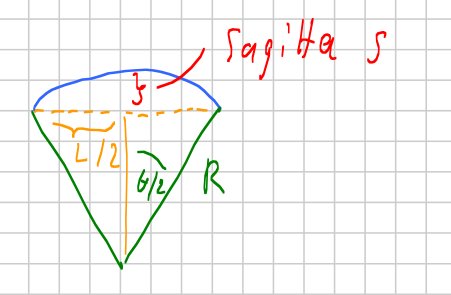 Sagitta s
L/2
θ/2
R